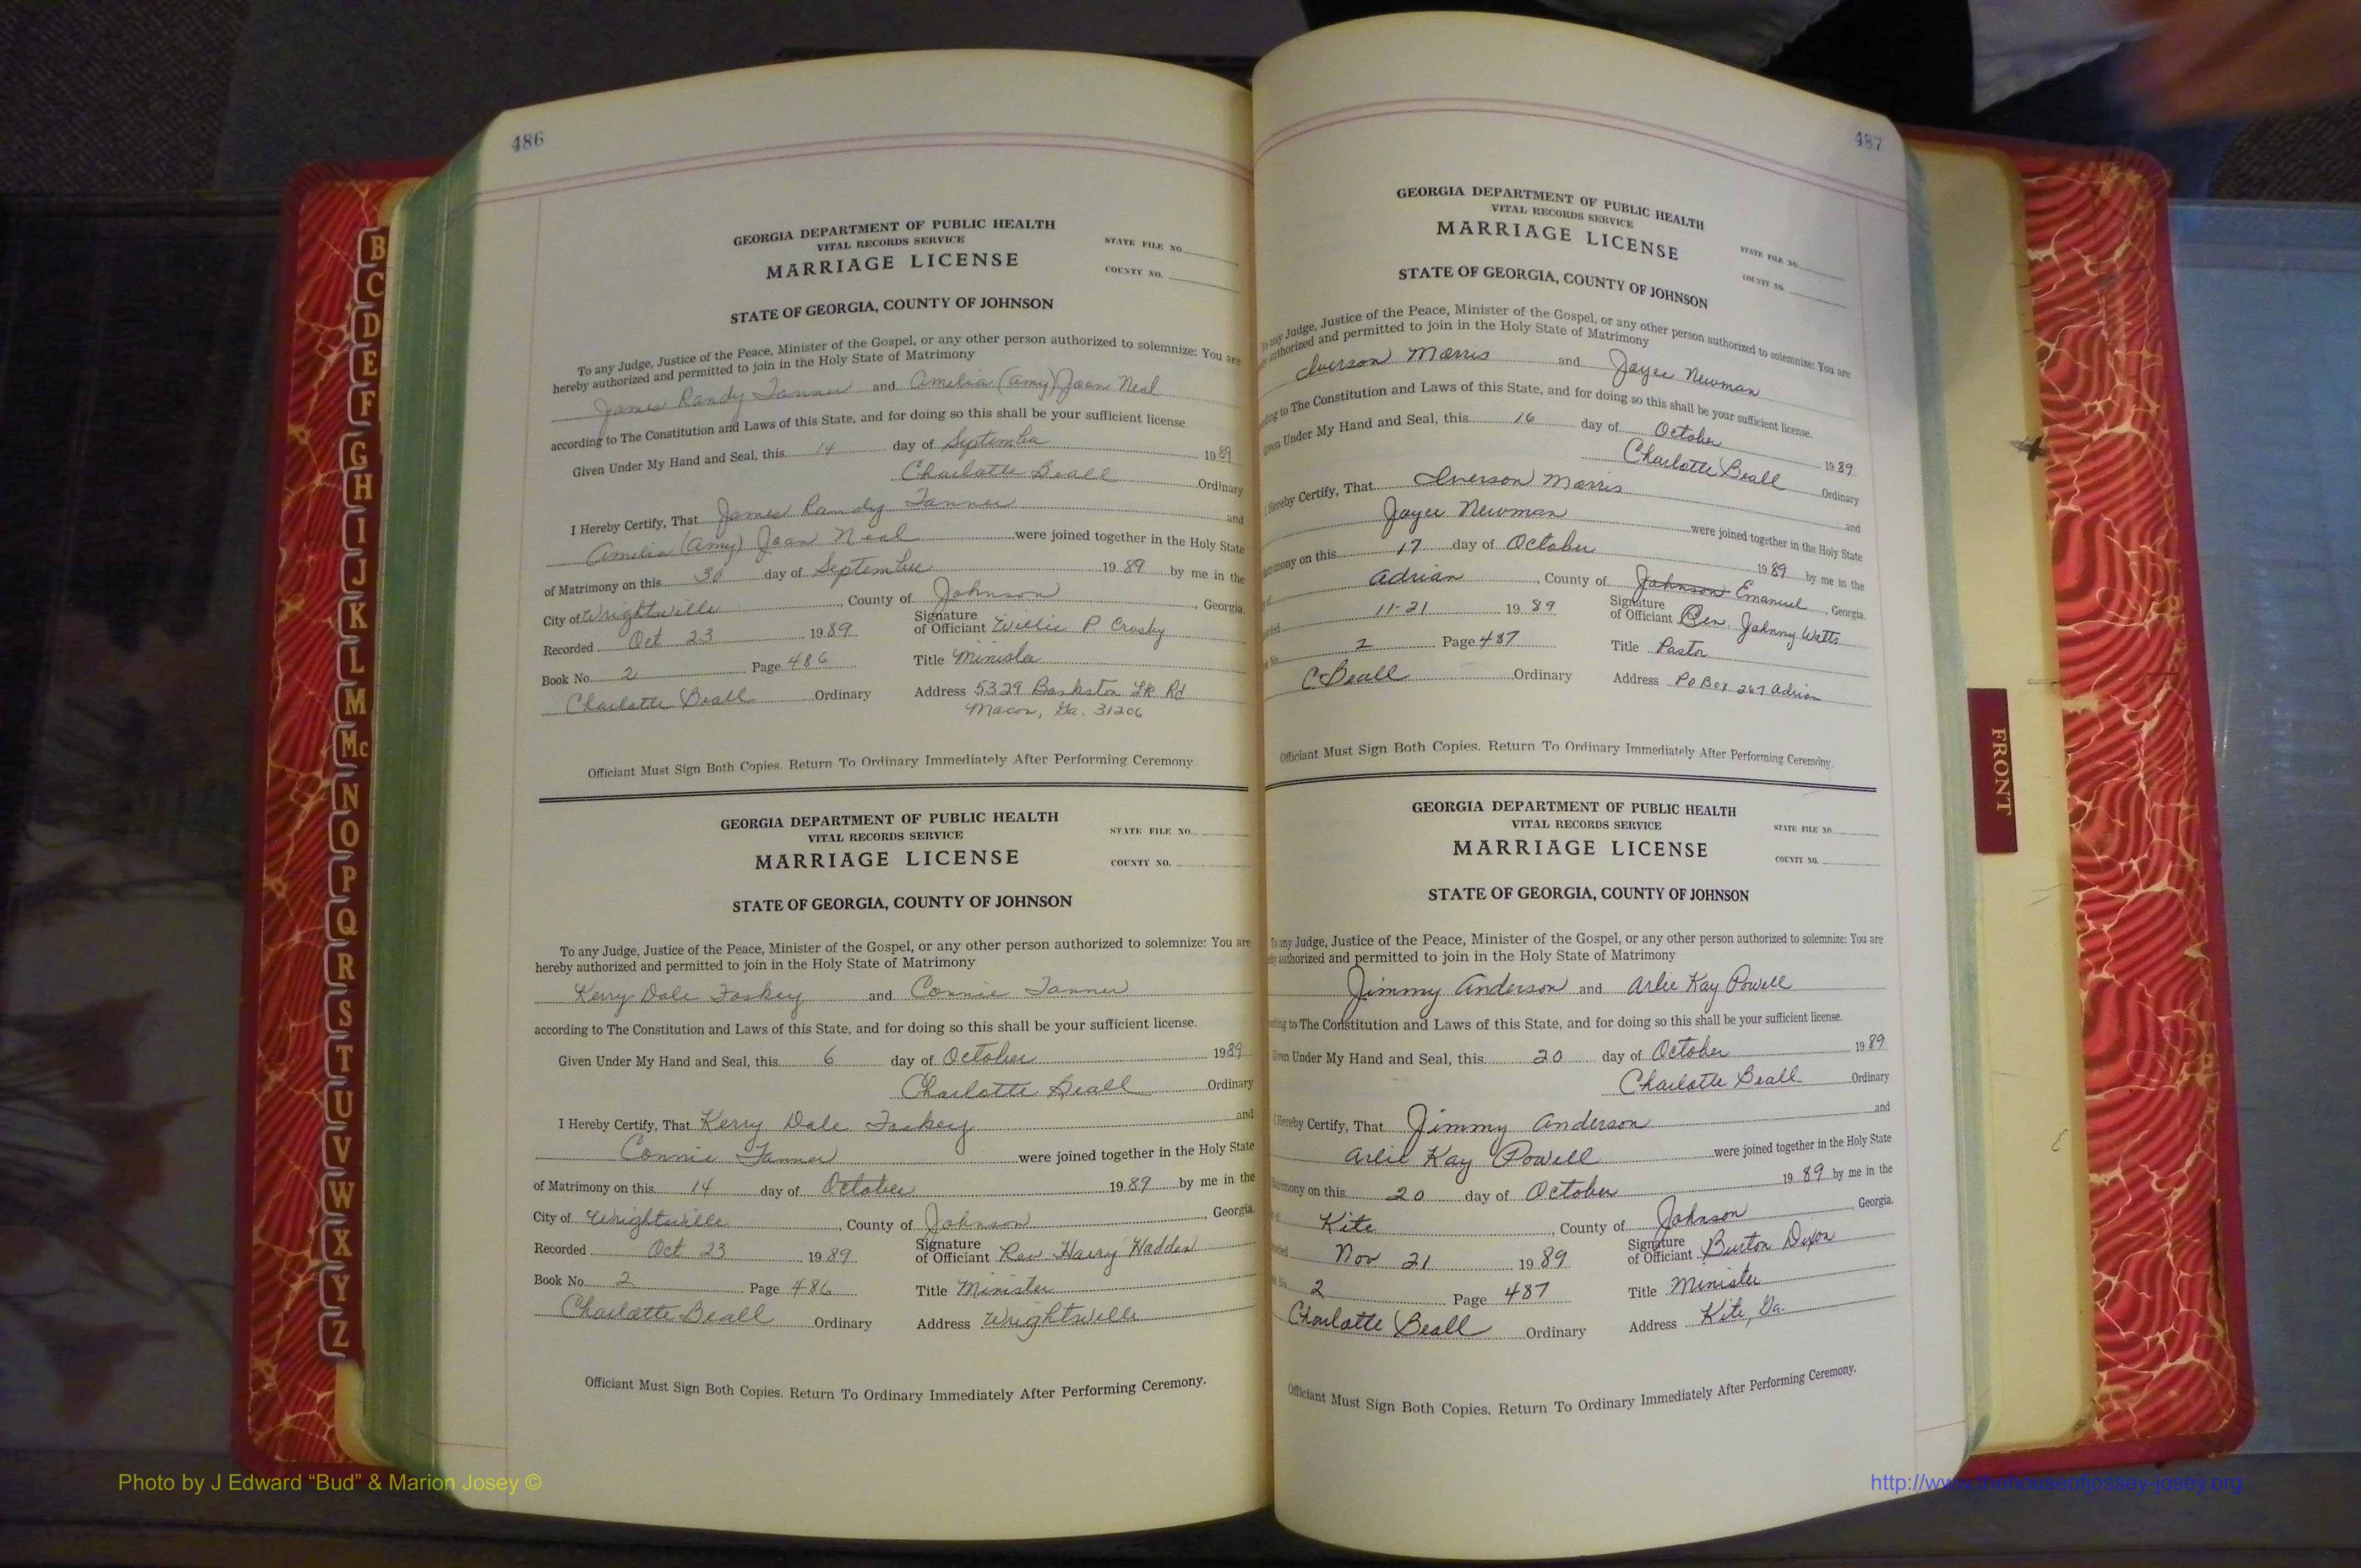 486
GEORGIA DEPARTMENT OF PUBLIC HEALTH
VITAL RECORDS SERVICE
MARRIAGE LICENSE
STATE FILE NO.
COUNTY NO.
STATE OF GEORGIA, COUNTY OF JOHNSON
To any Judge, Justice of the Peace, Minister of the Gospel, or any other person authorized to solemnize: You are
hereby authorized and permitted to join in the Holy State of Matrimony
James Randy Tanner and Amelia (Amy) Joan Neal
according to The Constitution and Laws of this State, and for doing so this shall be your sufficient license.
Given Under My Hand and Seal, this 14 day of September 1989
Charlotte Beall Ordinary
I Hereby Certify, That James Randy Tanner and
Amelia (Amy) Joan Neal were joined together in the Holy State
of Matrimony on this 30 day of September 1989 by me in the
City of Wrightsville, County of Johnson, Georgia.
Recorded Oct 23 1989 Signature of Officiant Willie P. Crosby
Book No. 2 Page 486 Title Minister
Charlotte Beall Ordinary Address 5329 Bankston Lk Rd
Macon, Ga. 31206
Officiant Must Sign Both Copies. Return To Ordinary Immediately After Performing Ceremony
GEORGIA DEPARTMENT OF PUBLIC HEALTH
VITAL RECORDS SERVICE
MARRIAGE LICENSE
STATE FILE NO.
COUNTY NO.
STATE OF GEORGIA, COUNTY OF JOHNSON
To any Judge, Justice of the Peace, Minister of the Gospel, or any other person authorized to solemnize: You are
hereby authorized and permitted to join in the Holy State of Matrimony
Kerry Dale Foskey and Connie Tanner
according to The Constitution and Laws of this State, and for doing so this shall be your sufficient license.
Given Under My Hand and Seal, this 6 day of October 1989
Charlotte Beall Ordinary
I Hereby Certify, That Kerry Dale Foskey and
Connie Tanner were joined together in the Holy State
of Matrimony on this 14 day of October 1989 by me in the
City of Wrightsville, County of Johnson, Georgia.
Recorded Oct 23 1989 Signature of Officiant Rev Harry Hadden
Book No. 2 Page 486 Title Minister
Charlotte Beall Ordinary Address Wrightsville
Officiant Must Sign Both Copies. Return To Ordinary Immediately After Performing Ceremony.
487
GEORGIA DEPARTMENT OF PUBLIC HEALTH
VITAL RECORDS SERVICE
MARRIAGE LICENSE
STATE FILE NO.
COUNTY NO.
STATE OF GEORGIA, COUNTY OF JOHNSON
To any Judge, Justice of the Peace, Minister of the Gospel, or any other person authorized to solemnize: You are
authorized and permitted to join in the Holy State of Matrimony
Iverson Morris and Joyce Newman
to The Constitution and Laws of this State, and for doing so this shall be your sufficient license.
Given Under My Hand and Seal, this 16 day of October 1989
Charlotte Beall Ordinary
I Hereby Certify, That Iverson Morris and
Joyce Newman were joined together in the Holy State
on this 17 day of October 1989 by me in the
Adrian, County of Johnson Emanuel, Georgia.
11-21 1989 Signature of Officiant Rev. Johnny Watts
2 Page 487 Title Pastor
C Beall Ordinary Address PO Box 267 Adrian
Officiant Must Sign Both Copies. Return To Ordinary Immediately After Performing Ceremony.
GEORGIA DEPARTMENT OF PUBLIC HEALTH
VITAL RECORDS SERVICE
MARRIAGE LICENSE
STATE FILE NO.
COUNTY NO.
STATE OF GEORGIA, COUNTY OF JOHNSON
To any Judge, Justice of the Peace, Minister of the Gospel, or any other person authorized to solemnize: You are
authorized and permitted to join in the Holy State of Matrimony
Jimmy Anderson and Arlie Kay Powell
to The Constitution and Laws of this State, and for doing so this shall be your sufficient license.
Given Under My Hand and Seal, this 20 day of October 1989
Charlotte Beall Ordinary
I Hereby Certify, That Jimmy Anderson and
Arlie Kay Powell were joined together in the Holy State
on this 20 day of October 1989 by me in the
Kite, County of Johnson, Georgia.
Nov 21 1989 Signature of Officiant Burton Dixon
2 Page 487 Title Minister
Charlotte Beall Ordinary Address Kite, Ga.
Officiant Must Sign Both Copies. Return To Ordinary Immediately After Performing Ceremony.
B
C
D
E
F
G
H
I
J
K
L
M
Mc
N
O
P
Q
R
S
T
U
V
W
X
Y
Z
FRONT
Photo by J Edward “Bud” & Marion Josey ©
http://www.thehouseofjossey-josey.org